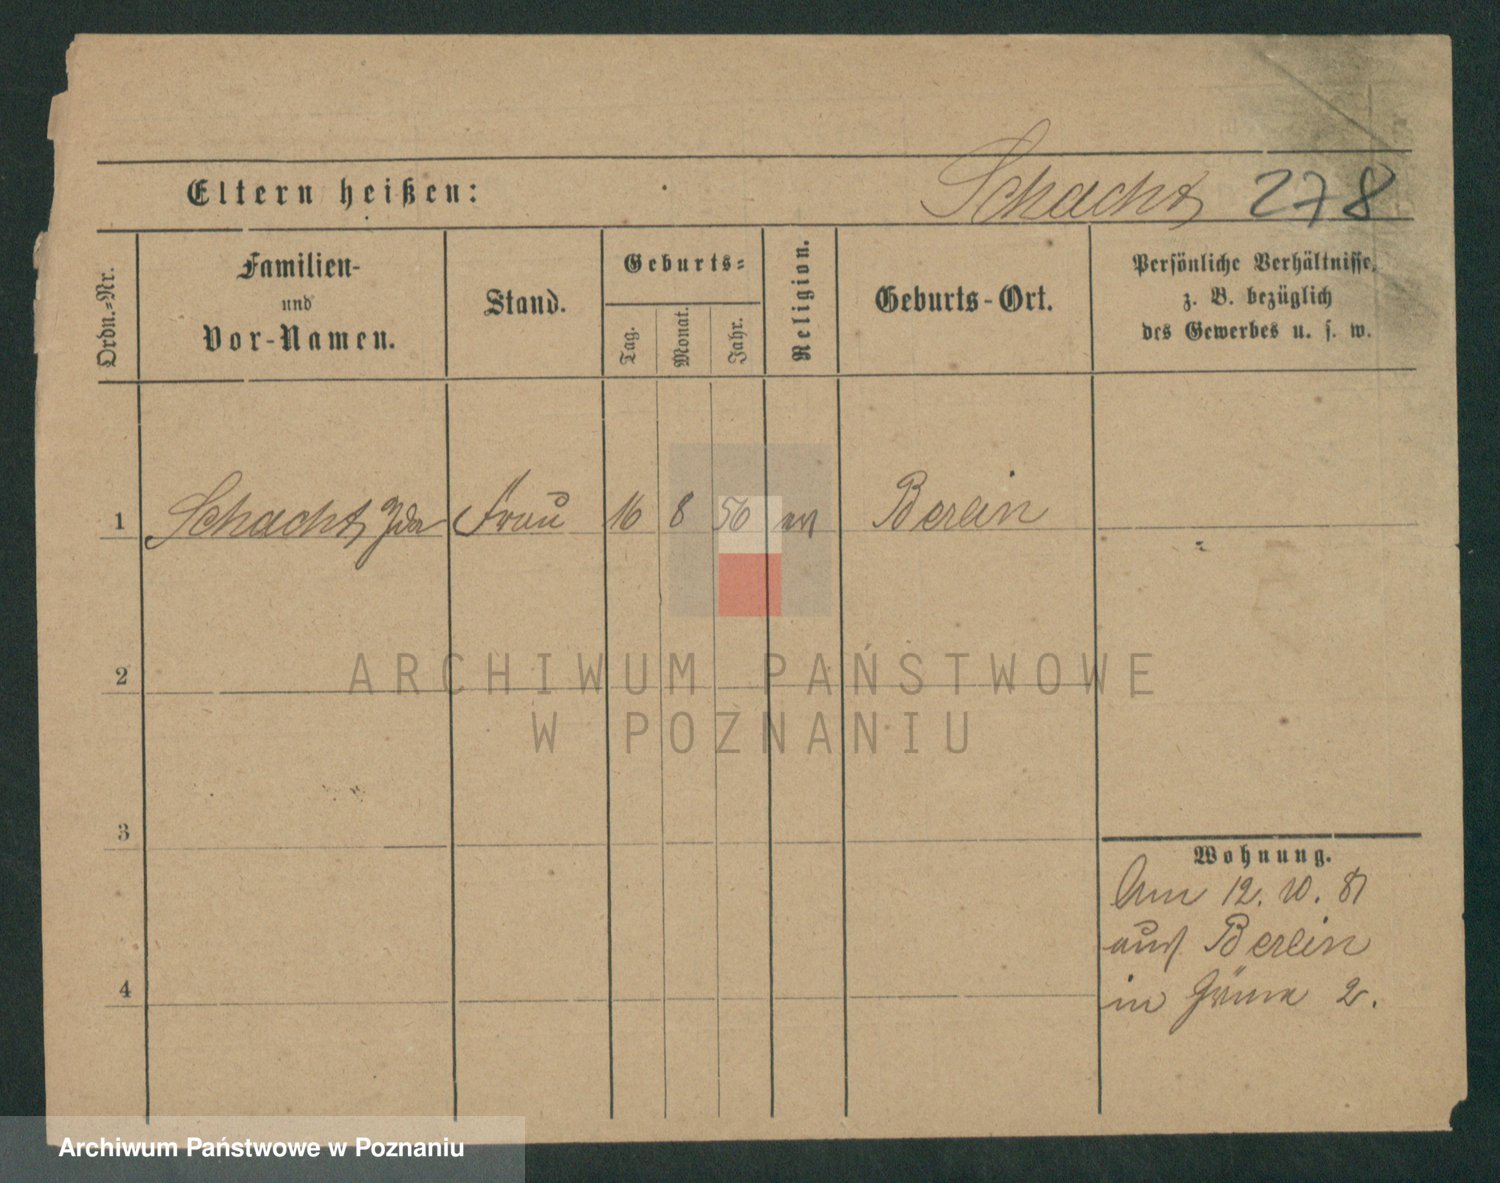 Schacht 278
Eltern heißen:
Ordn.-Nr.
Familien-
und
Vor-Namen.
Stand.
Geburts-
Tag.
Monat.
Jahr.
Religion.
Geburts-Ort.
Persönliche Verhältnisse,
z. B. bezüglich
des Gewerbes u. s. w.
1 Schacht, Ida Frau 16 8 56 ev Berlin
2
3
4
Wohnung.
Am 12. 10. 81
aus Berlin
in 2.
ARCHIWUM PAŃSTWOWE
W POZNANIU
Archiwum Państwowe w Poznaniu